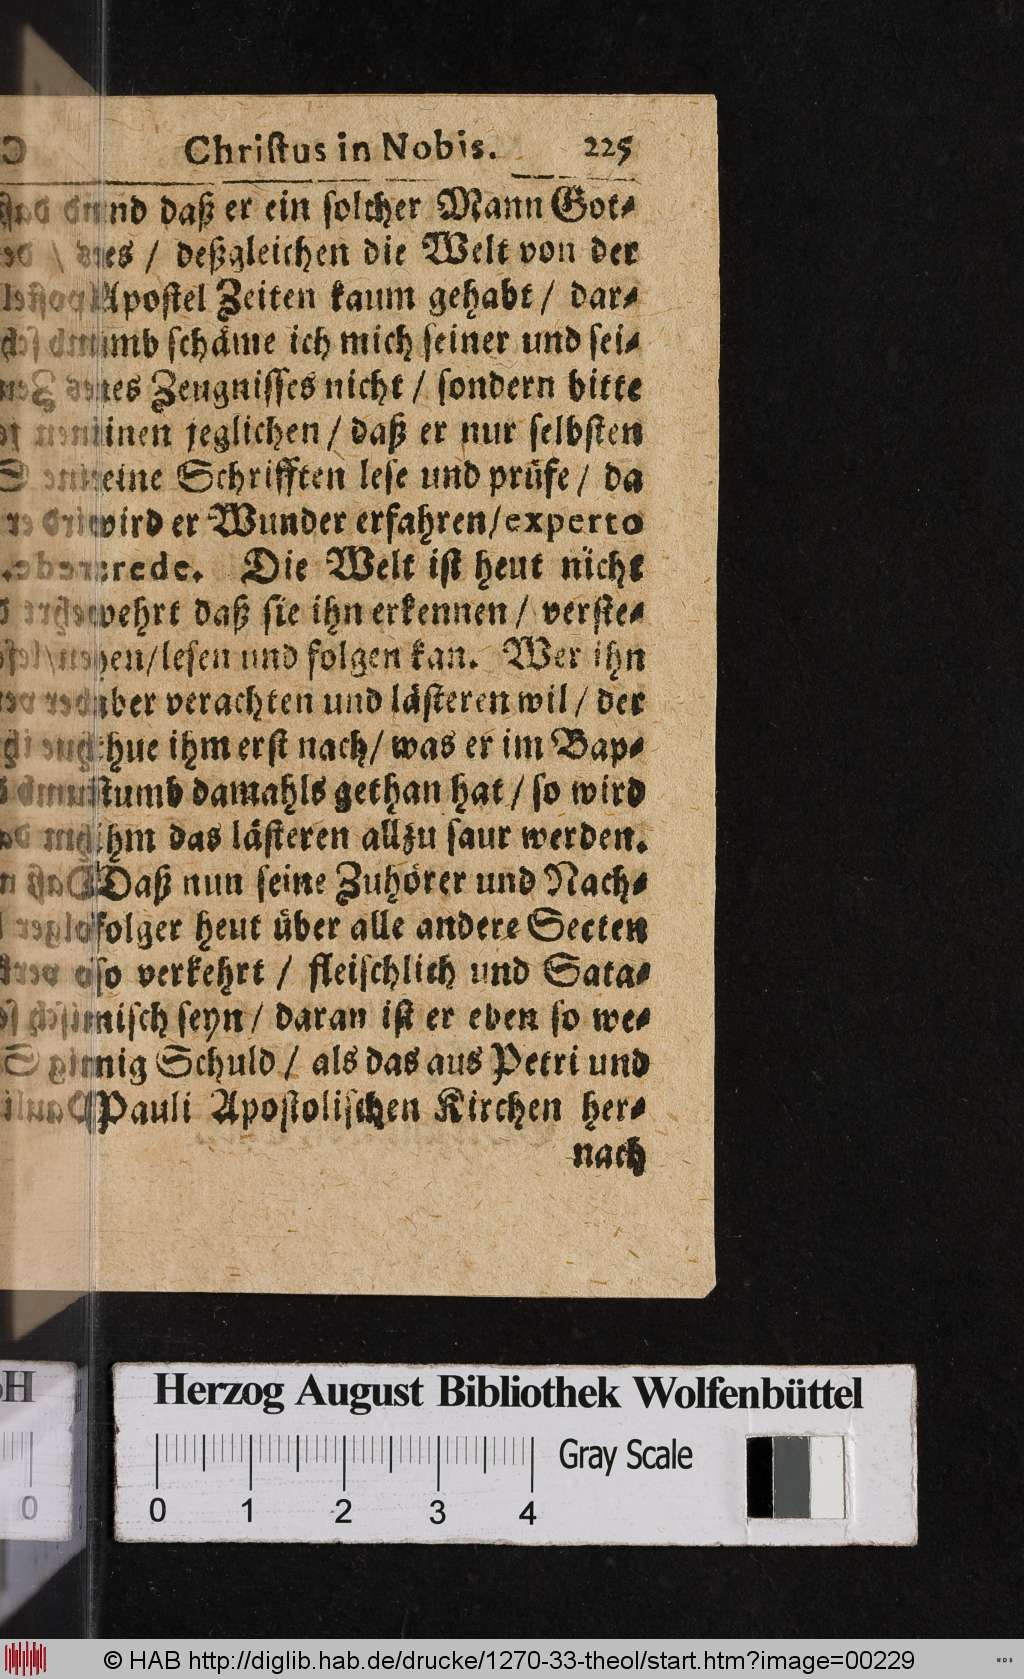 Christus in Nobis. 225
und daß er ein solcher Mann Got-
tes / deßgleichen die Welt von der
Apostel Zeiten kaum gehabt / dar-
umb schäme ich mich seiner und sei-
nes Zeugnisses nicht / sondern bitte
einen jeglichen / daß er nur selbsten
seine Schrifften lese und prüfe / da
wird er Wunder erfahren/experto
crede. Die Welt ist heut nicht
wehrt daß sie ihn erkennen / verste-
hen/lesen und folgen kan. Wer ihn
aber verachten und lästeren wil / der
thue ihm erst nach/ was er im Bap-
stumb damahls gethan hat / so wird
ihm das lästeren allzu saur werden.
Daß nun seine Zuhörer und Nach-
folger heut über alle andere Secten
so verkehrt / fleischlich und Sata-
nisch seyn / daran ist er eben so we-
nig Schuld / als das aus Petri und
Pauli Apostolischen Kirchen her-
nach
Herzog August Bibliothek Wolfenbüttel
Gray Scale
0 1 2 3 4
© HAB http://diglib.hab.de/drucke/1270-33-theol/start.htm?image=00229